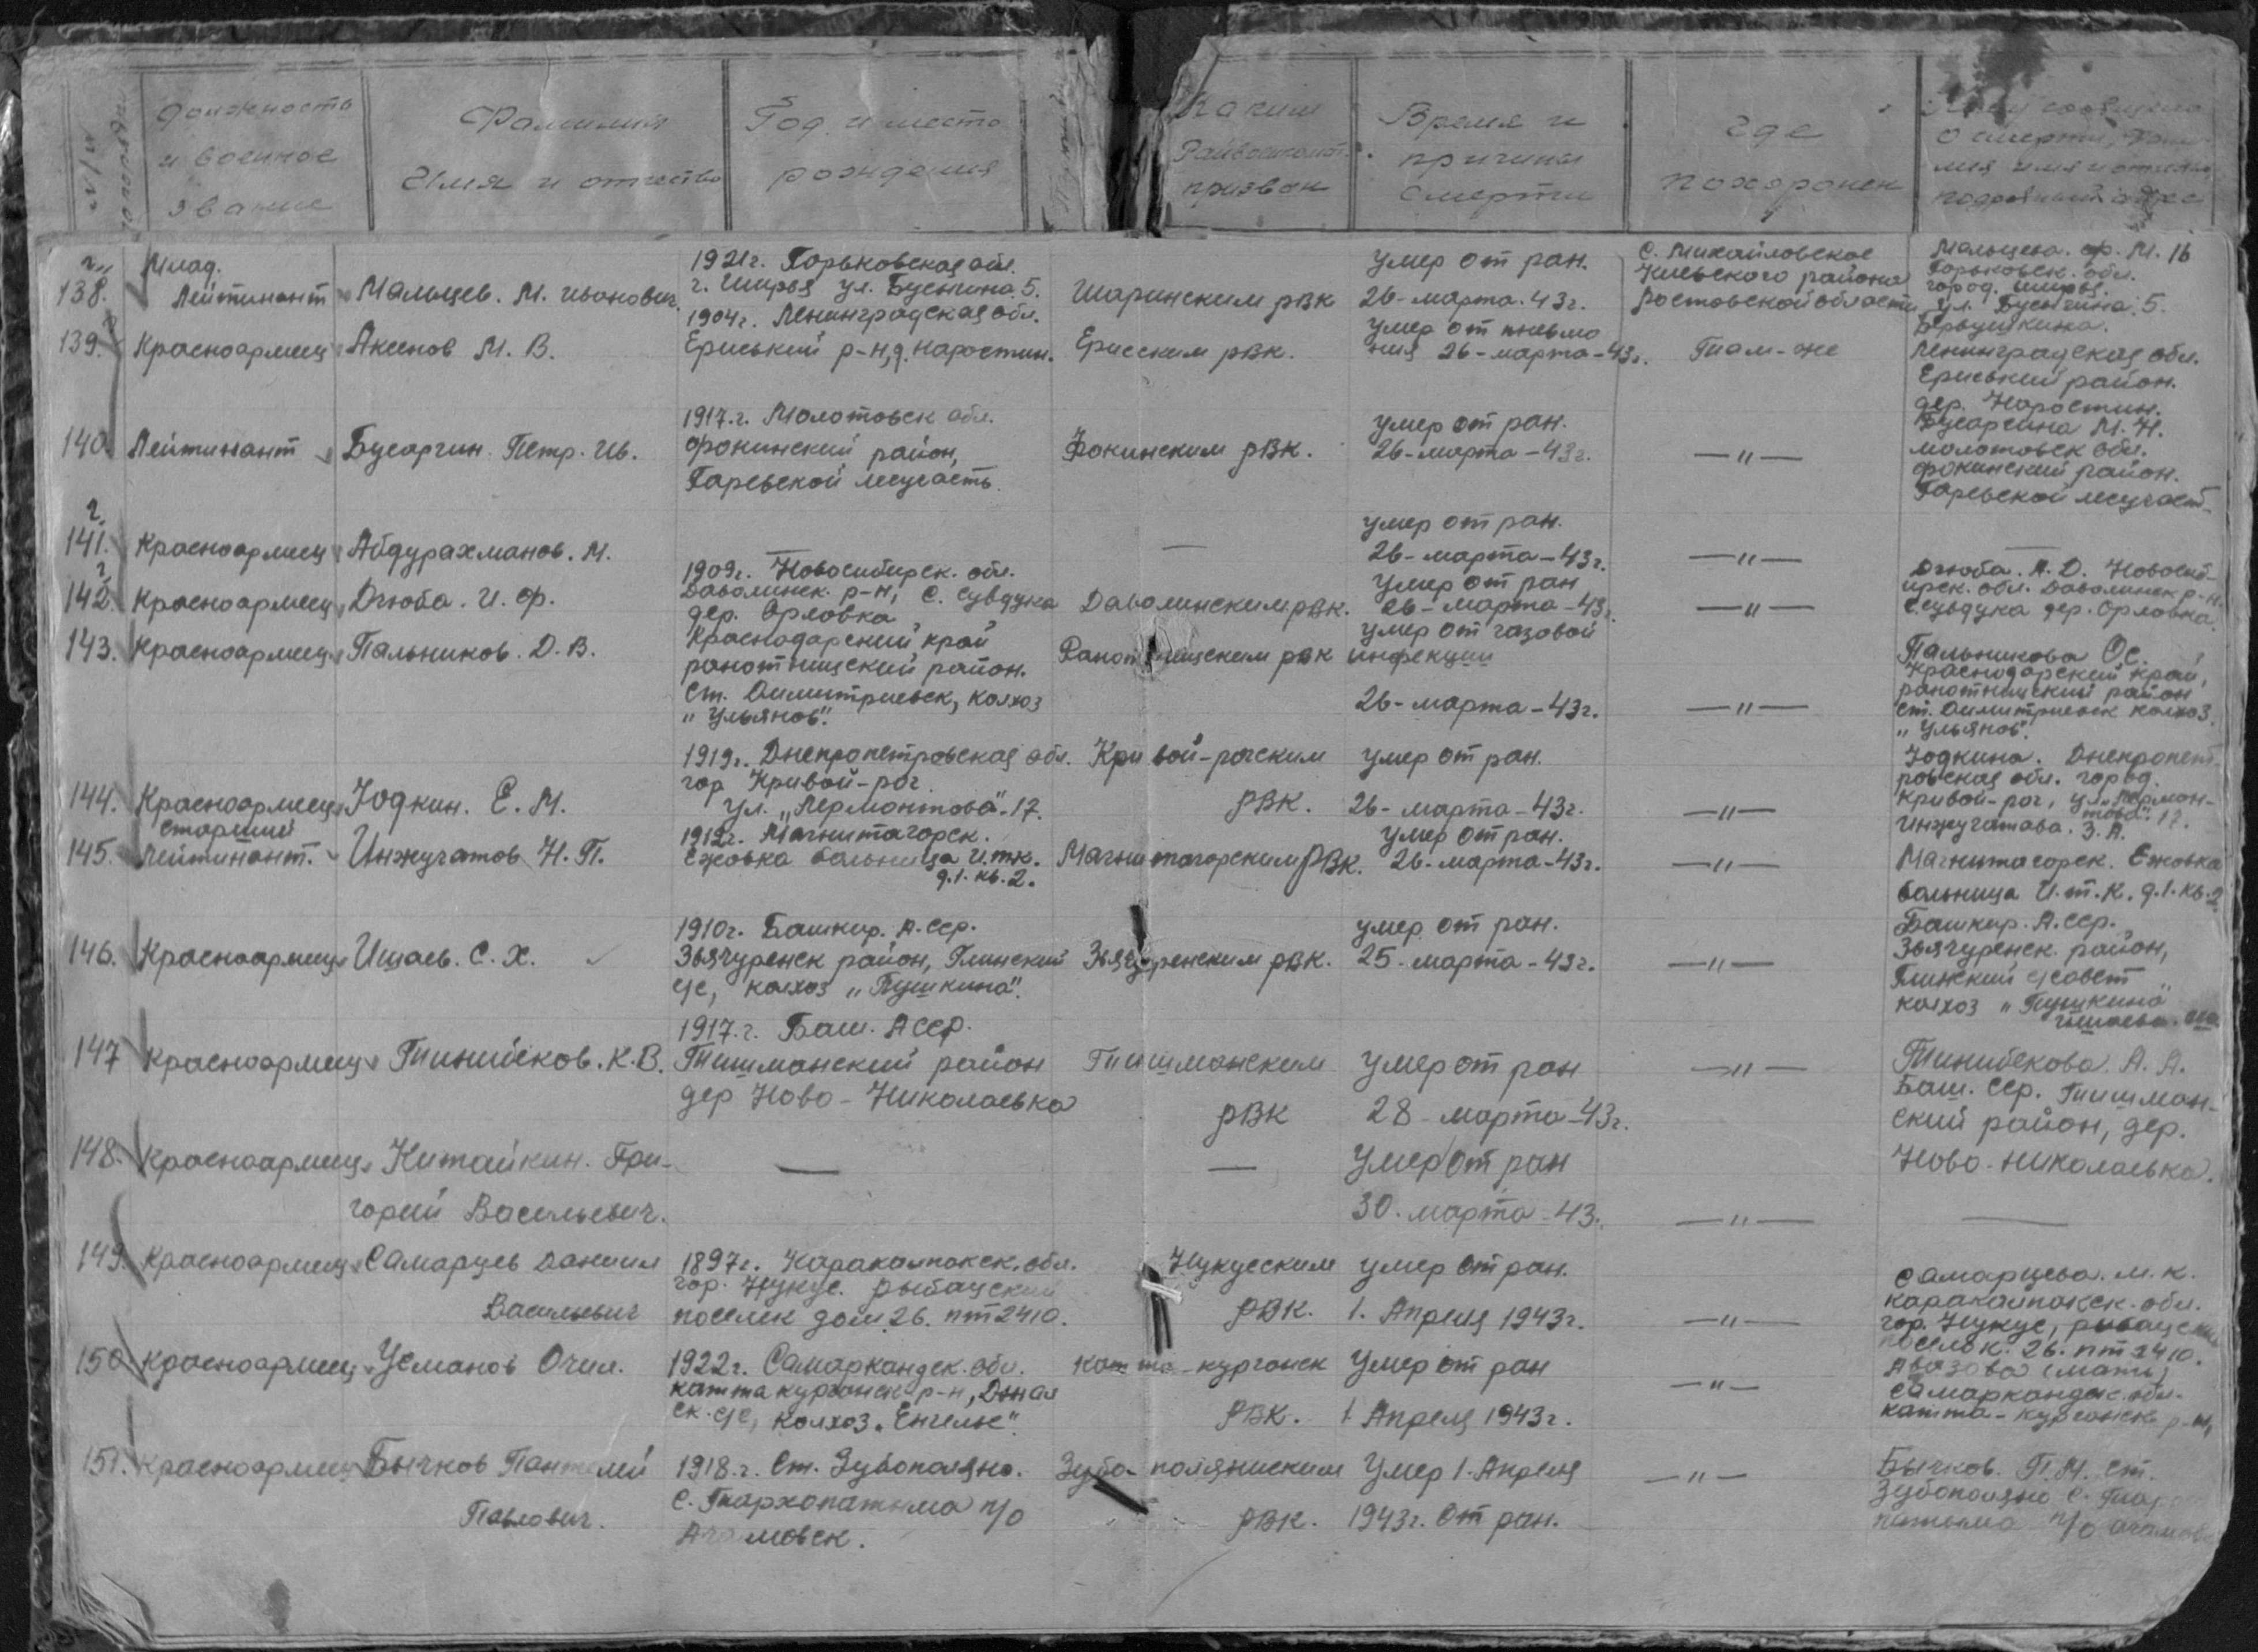 п/п
Должность
и военное
звание
Фамилия
Имя и отчество
Год и место
рождения
Каким
Райвоенкомат.
призван
Время и
причина
смерти
где
похоронен
Кому сообщено
о смерти, Фами-
лия имя и отчество
подробный адрес
138.
Млад.
Лейтинант
Мальцев. М. Иванович.
1921г. Горьковская обл.
г. Ширья ул. Бусыгина. 5.
Шаринским рвк
умер от ран.
26-марта. 43г.
С. Михайловское
района
Ростовской области
Мальцева. ф. М. 16
Горьковск. обл.
город. Ширья.
ул. Бусыгина. 5.
139.
Красноармеец
Аксенов М. В.
1904г. Ленинградская обл.
Ериський р-н, д. Наростин.
Ериским рвк.
умер от пневмо
ния 26-марта-43г.
Там-же
Бервушкина.
Ленинградская обл.
Ериський район.
дер. Наростин.
140.
Лейтинант
Бусаргин. Петр. Ив.
1917.г. Молотовск обл.
Фокинский район,
Гаревской лесучасть.
Фокинским рвк.
умер от ран.
26-марта-43г.
—"—
Бусаргина М. Н.
молотовск обл.
фокинский район.
Гаревской лесучаст-
2.
141.
Красноармеец
Абдурахманов. М.
—
—
умер от ран.
26-марта-43г.
—"—
—
2
142.
Красноармеец
Дзюба. И. ф.
1909г. Новосибирск. обл.
Даволинск. р-н, с. Сувдука
дер. Орловка
Даволинским рвк.
умер от ран
26-марта-43г.
—"—
Дзюба. А. Д. Новосиб-
ирск. обл. Даволинск р-н.
С. Сувдука дер. Орловка.
143.
Красноармеец
Пальников. Д. В.
Краснодарский край
ранотницский район.
ст. Димитриевск, колхоз
"Ульянов".
рвк
умер от газовой
инфекции
26-марта-43г.
—"—
Пальникова Ос.
Краснодарский край,
ранотницский район
ст. Димитриевск колхоз
"Ульянов".
144.
Красноармеец
Годкин. Е. М.
1919г. Днепропетровская обл.
гор Кривой-рог
ул. "Лермонтова"-17.
Кривой-рогским
рвк.
умер от ран.
26-марта-43г.
—"—
Годкина. Днепропет-
ровская обл. город.
Кривой-рог, ул. "Лермон-
това". 17.
145.
Старший
Лейтинант.
Инжучатов Н. П.
1912г. Магнитагорск.
Ежовка больница И.т.к.
д.1. кв. 2.
Магнитагорским рвк.
умер от ран.
26-марта-43г.
—"—
Инжучатова. З. А.
Магнитагорск. Ежовка
больница И.т.К. д.1. кв. 2
146.
Красноармеец
Ишаев. С. Х.
1910г. Башкир. А. сср.
Зьячуренск район, Глинский
с/с, колхоз "Пушкина".
Зьячуренским рвк.
умер от ран.
25-марта-43г.
—"—
Башкир. А. сср.
Зьячуренск. район,
Глинский с/совет
колхоз "Пушкина"
Ишаева.
147
Красноармеец
Тинибеков. К. В.
1917.г. Баш. А сср.
Тишманский район
дер Ново-Николаевка
Тишманским
рвк
умер от ран
28-марта-43г.
—"—
Тинибекова. А. А.
Баш. сср. Тишман-
ский район, дер.
Ново-николаевка.
148.
Красноармеец
Китайкин. Гри-
горий Васильевич.
—
—
Умер от ран
30. марта-43.
—"—
—
149.
Красноармеец
Самарцев Даниил
Васильевич
1897г. Каракалпакск. обл.
гор. Нукус. рыбацский
поселек дом. 26. пт 2410.
Нукусским
рвк.
умер от ран.
1. Апреля 1943г.
—"—
Самарцева. м. к.
каракалпакск. обл.
гор. Нукус, рыбацский
поселок. 26. пт 2410.
150
Красноармеец
Усманов Очил.
1922г. Самаркандск. обл.
катта курганск р-н,
ск. с/с, колхоз "Енгельс".
Катта-курганск
рвк.
Умер от ран
1 Апреля 1943г.
—"—
Авазова (мать)
Самаркандск. обл.
катта-курганск р-н,
151.
Красноармеец
Бычков Пантелей
Павлович.
1918.г. ст. Зубополяно.
С. Тархопатьма п/о
Зубо-полянским
рвк.
Умер 1. Апреля
1943г. от ран.
—"—
Бычков. П. М. ст.
Зубополяно С.
патьма п/о